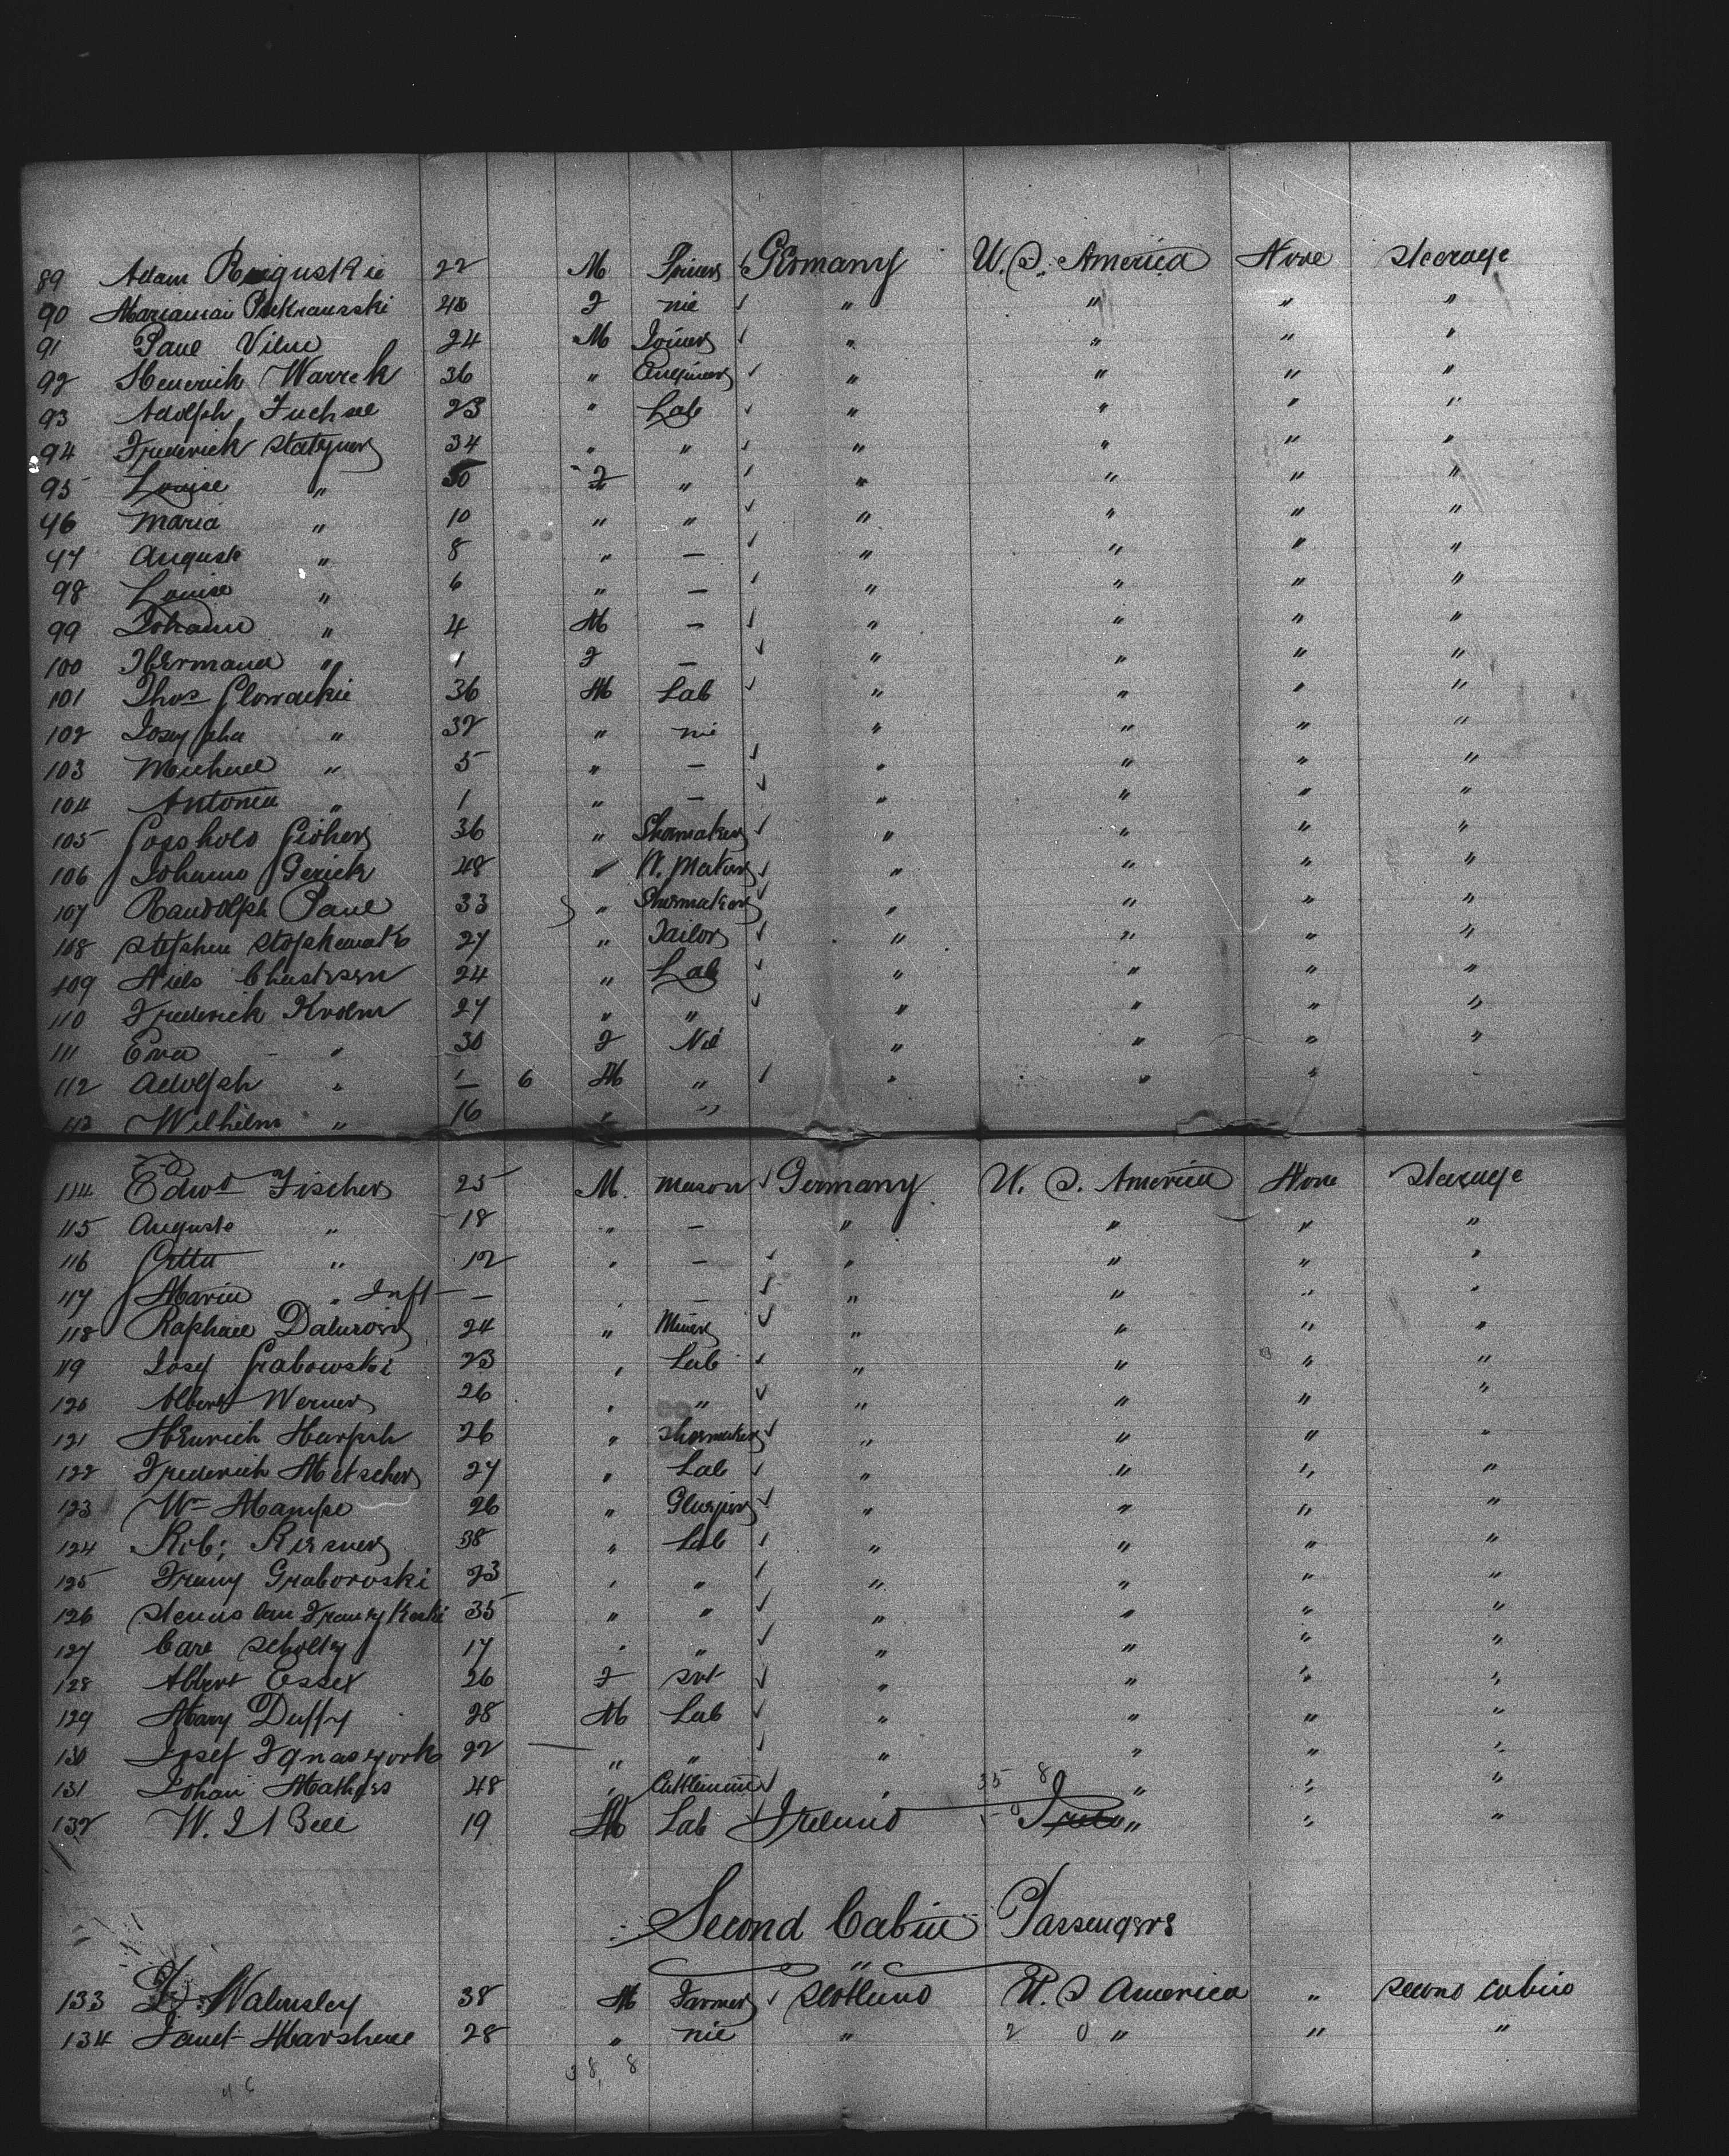 89 Adam 22 M Germany U. S. America None Steerage
90 40 F nil " " " "
91 Paul Vilm 24 M Joiner " " " "
92 Heinrich Warrek 36 " Engineer " " " "
93 Adolph Fuchse 23 " Lab " " " "
94 Frederick 34 " " " " " "
95 Louise " 30 F " " " " "
96 Maria " 10 " " " " " "
97 August " 8 " — " " " "
98 Louise " 6 " — " " " "
99 Johann " 4 M — " " " "
100 Hermand " 1 F — " " " "
101 Thos Glowackie 36 M Lab " " " "
102 Josepha " 32 " nil " " " "
103 Michael " 5 " — " " " "
104 Antonia " 1 " — " " " "
105 36 " Shoemaker " " " "
106 Johanns Gerick 48 " " " " "
107 Randolph Paul 33 " Shoemaker " " " "
108 Stephen 27 " Tailor " " " "
109 Niels 24 " Lab " " " "
110 Frederick Krolm 27 " " " " " "
111 Eva " 30 F Nil " " " "
112 Adolph " 1 6 M " " " " "
113 Wilhelm " 16 " "
114 Edwd Fischer 25 M. Mason Germany U. S. America None Steerage
115 Auguste " 18 " — " " " "
116 " 12 " — " " " "
117 Maria " Inft — " — " " " "
118 Raphael 24 " Miner " " " "
119 Josef Grabowski 23 " Lab " " " "
120 Albert Werner 26 " " " " " "
121 Heinrich Harpsh 26 " Shoemaker " " " "
122 Frederich Metscher 27 " Lab " " " "
123 Wm Mampe 26 " " " " "
124 Rob: Rirsner 38 " Lab " " " "
125 Franz Graboroski 23 " " " " " "
126 35 " " " " " "
127 Carl Scholtz 17 " " " " " "
128 Albert Esset 26 F svt " " " "
129 Mary Duffy 28 M Lab " " " "
130 Josef 22 — " " " " " "
131 Johan Mathers 48 " " 35 8 " " "
132 W. J. Bell 19 M Lab Ireland " " "
Second Cabin Passengers
"
133 Walmsley 38 M Farmer Scotland U. S America " second cabin
134 Janet Marshall 28 " nil " 2 0 " " "
38, 8